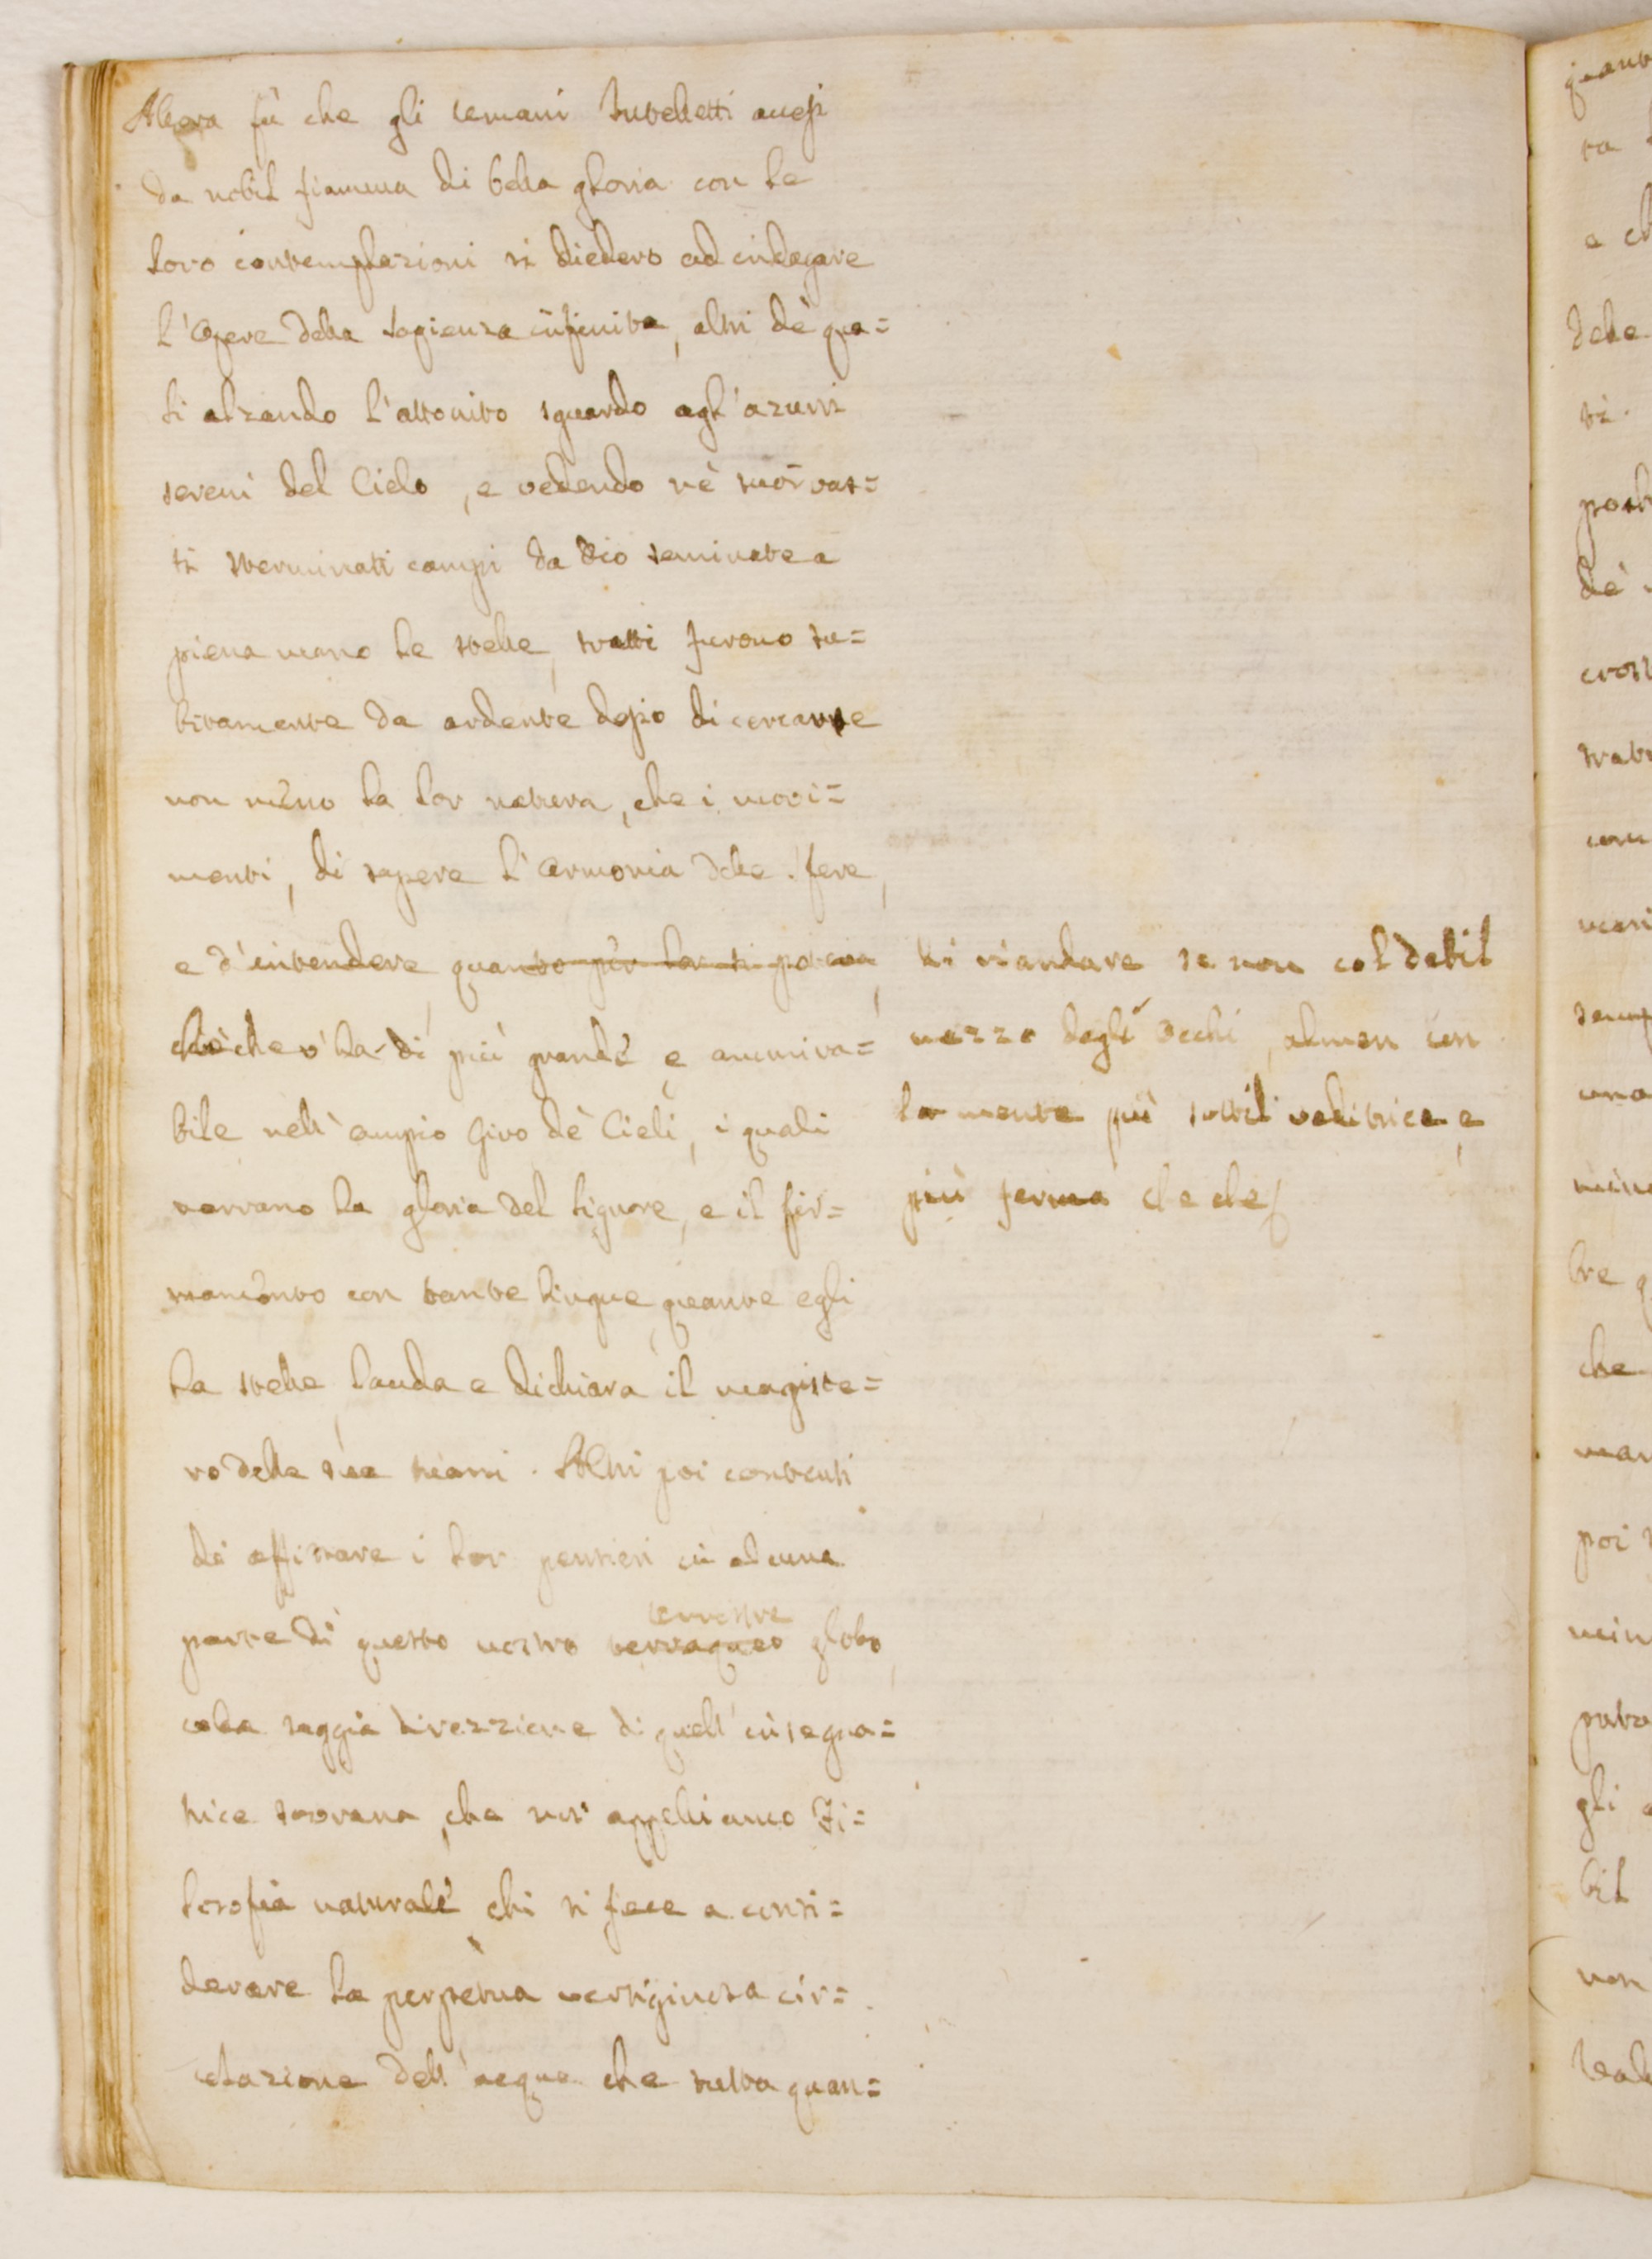 Allora fù che gli umani Intelletti accesi
da nobil fiamma di bella gloria con le
loro contemplazioni si diedero ad indagare
l'Opere della Sapienza infinita, altri dè qua=
li alzando l'attonito sguardo agl'azurri
sereni del Cielo, e vedendo nè suoi vas=
ti sterminati campi da Dio seminate a
piena mano le stelle, tratti furono su=
bitamente da ardente desio di cercarne
non meno la lor natura, che i movi=
menti, di sapere l'Armonia delle sfere,
e d'intendere quanto per lor si poteva
ciò che v'ha di più grande e ammira=
bile nell'ampio Giro dè Cieli, i quali
narrano la gloria del Signore, e il fir=
mamento con tante lingue quante egli
ha stelle lauda e dichiara il magiste=
ro delle sue mani. Altri poi contenti
di affissare i lor pensieri in alcuna
terrestre
parte di questo nostro terraqueo globo,
colla saggia direzzione di quell'insegna=
trice sovrana, che noi appelliamo Fi=
losofia naturale chi si fece a consi=
derare la perpetua vertiginosa cir=
colazione dell'acque che tutta quan=
di riandare se non col debil
mezzo degli Occhi, almen con
la mente più sottil veditrice e
più ferma